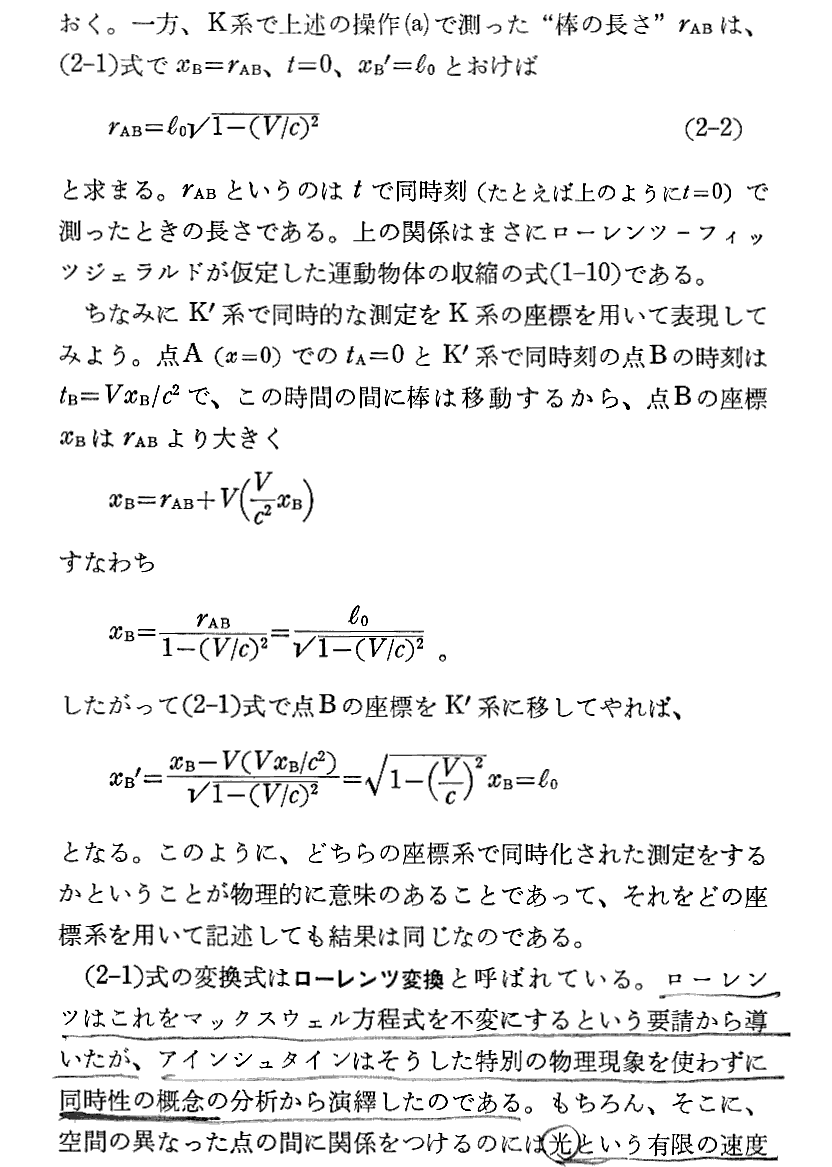 おく。一方、K系で上述の操作(a)で測った“棒の長さ” rABは、
(2-1)式で xB=rAB、t=0、xB′=ℓ0 とおけば
rAB=ℓ0√1−(V/c)² (2-2)
と求まる。rAB というのは t で同時刻 (たとえば上のようにt=0) で
測ったときの長さである。上の関係はまさにローレンツ−フィッ
ツジェラルドが仮定した運動物体の収縮の式(1-10)である。
ちなみに K′ 系で同時的な測定を K 系の座標を用いて表現して
みよう。点A (x=0) での tA=0 と K′ 系で同時刻の点Bの時刻は
tB=VxB/c² で、この時間の間に棒は移動するから、点Bの座標
xBは rAB より大きく
xB=rAB+V(V/c² xB)
すなわち
xB=rAB/1−(V/c)²=ℓ0/√1−(V/c)² 。
したがって(2-1)式で点Bの座標を K′ 系に移してやれば、
xB′=xB−V(VxB/c²)/√1−(V/c)²=√1−(V/c)² xB=ℓ0
となる。このように、どちらの座標系で同時化された測定をする
かということが物理的に意味のあることであって、それをどの座
標系を用いて記述しても結果は同じなのである。
(2-1)式の変換式はローレンツ変換と呼ばれている。ローレン
ツはこれをマックスウェル方程式を不変にするという要請から導
いたが、アインシュタインはそうした特別の物理現象を使わずに
同時性の概念の分析から演繹したのである。もちろん、そこに、
空間の異なった点の間に関係をつけるのには光という有限の速度